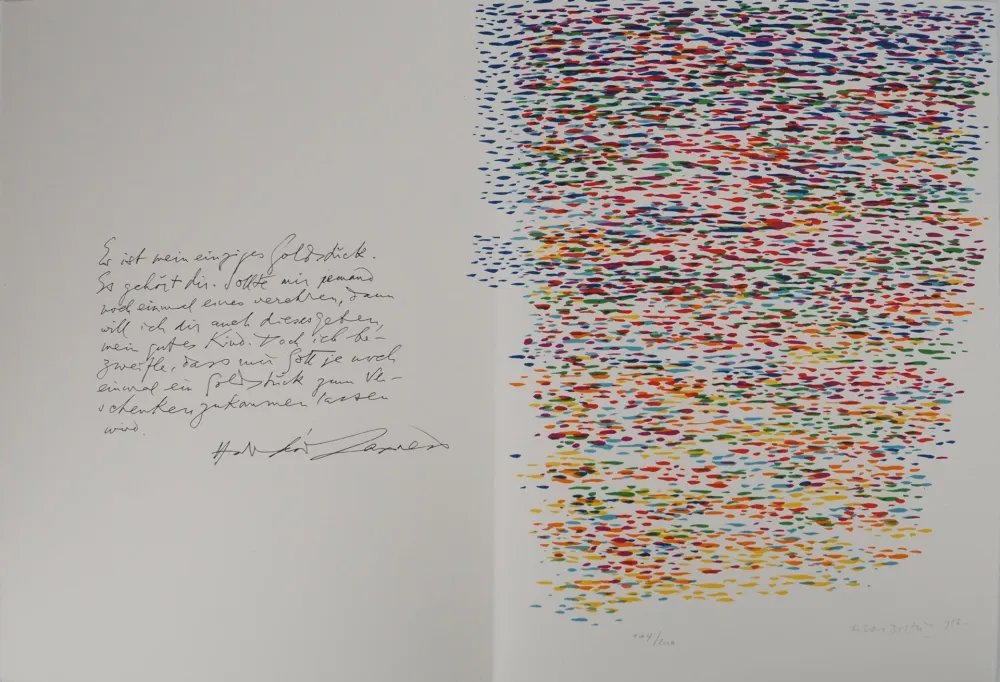 Es ist mein einziges Goldstück.
Es gehört dir. Sollte mir jemand
noch einmal eines verehren, dann
will ich dir auch dieses geben,
mein gutes Kind. Doch ich be-
zweifle, dass mir Gott je noch
einmal ein Goldstück zum Ver-
schenken zukommen lassen
wird.
109/200